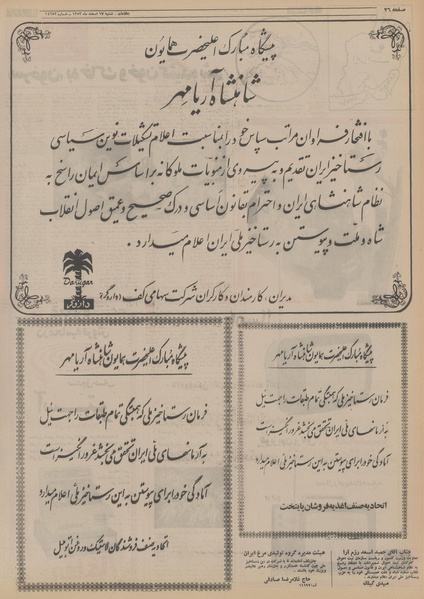 صفحه ۲۶
پیشگاه مبارک اعلیحضرت همایون
شاهنشاه آریامهر
با افتخار فراوان مراتب سپاس خود را بمناسبت اعلام تشکیلات نوین سیاسی
رستاخیز ایران تقدیم و به پیروی از منویات ملوکانه براساس ایمان راسخ به
نظام شاهنشاهی ایران و احترام بقانون اساسی و درک صحیح و عمیق اصول انقلاب
شاه و ملت و پیوستن به رستاخیز ملی ایران اعلام میدارد.
مدیران، کارمندان و کارگران شرکت سهامی کف (داروگر)
Darugar
داروگر
پیشگاه مبارک اعلیحضرت همایون شاهنشاه آریامهر
فرمان رستاخیز ملی که همبستگی تمام طبقات را جهت نیل
به آرمانهای ملی ایران تحقق می بخشد غرور انگیز است
آمادگی خود را برای پیوستن به این رستاخیز ملی اعلام میدارد
اتحادیه صنف اغذیه فروشان پایتخت
پیشگاه مبارک اعلیحضرت همایون شاهنشاه آریامهر
فرمان رستاخیز ملی که همبستگی تمام طبقات را جهت نیل
به آرمانهای ملی ایران تحقق می بخشد غرور انگیز است
آمادگی خود را برای پیوستن به این رستاخیز ملی اعلام میدارد
اتحادیه صنف فروشندگان لاستیک و روغن اتومبیل
هیئت مدیره گروه تولیدی مرغ ایران
حاج غلامرضا صادقی